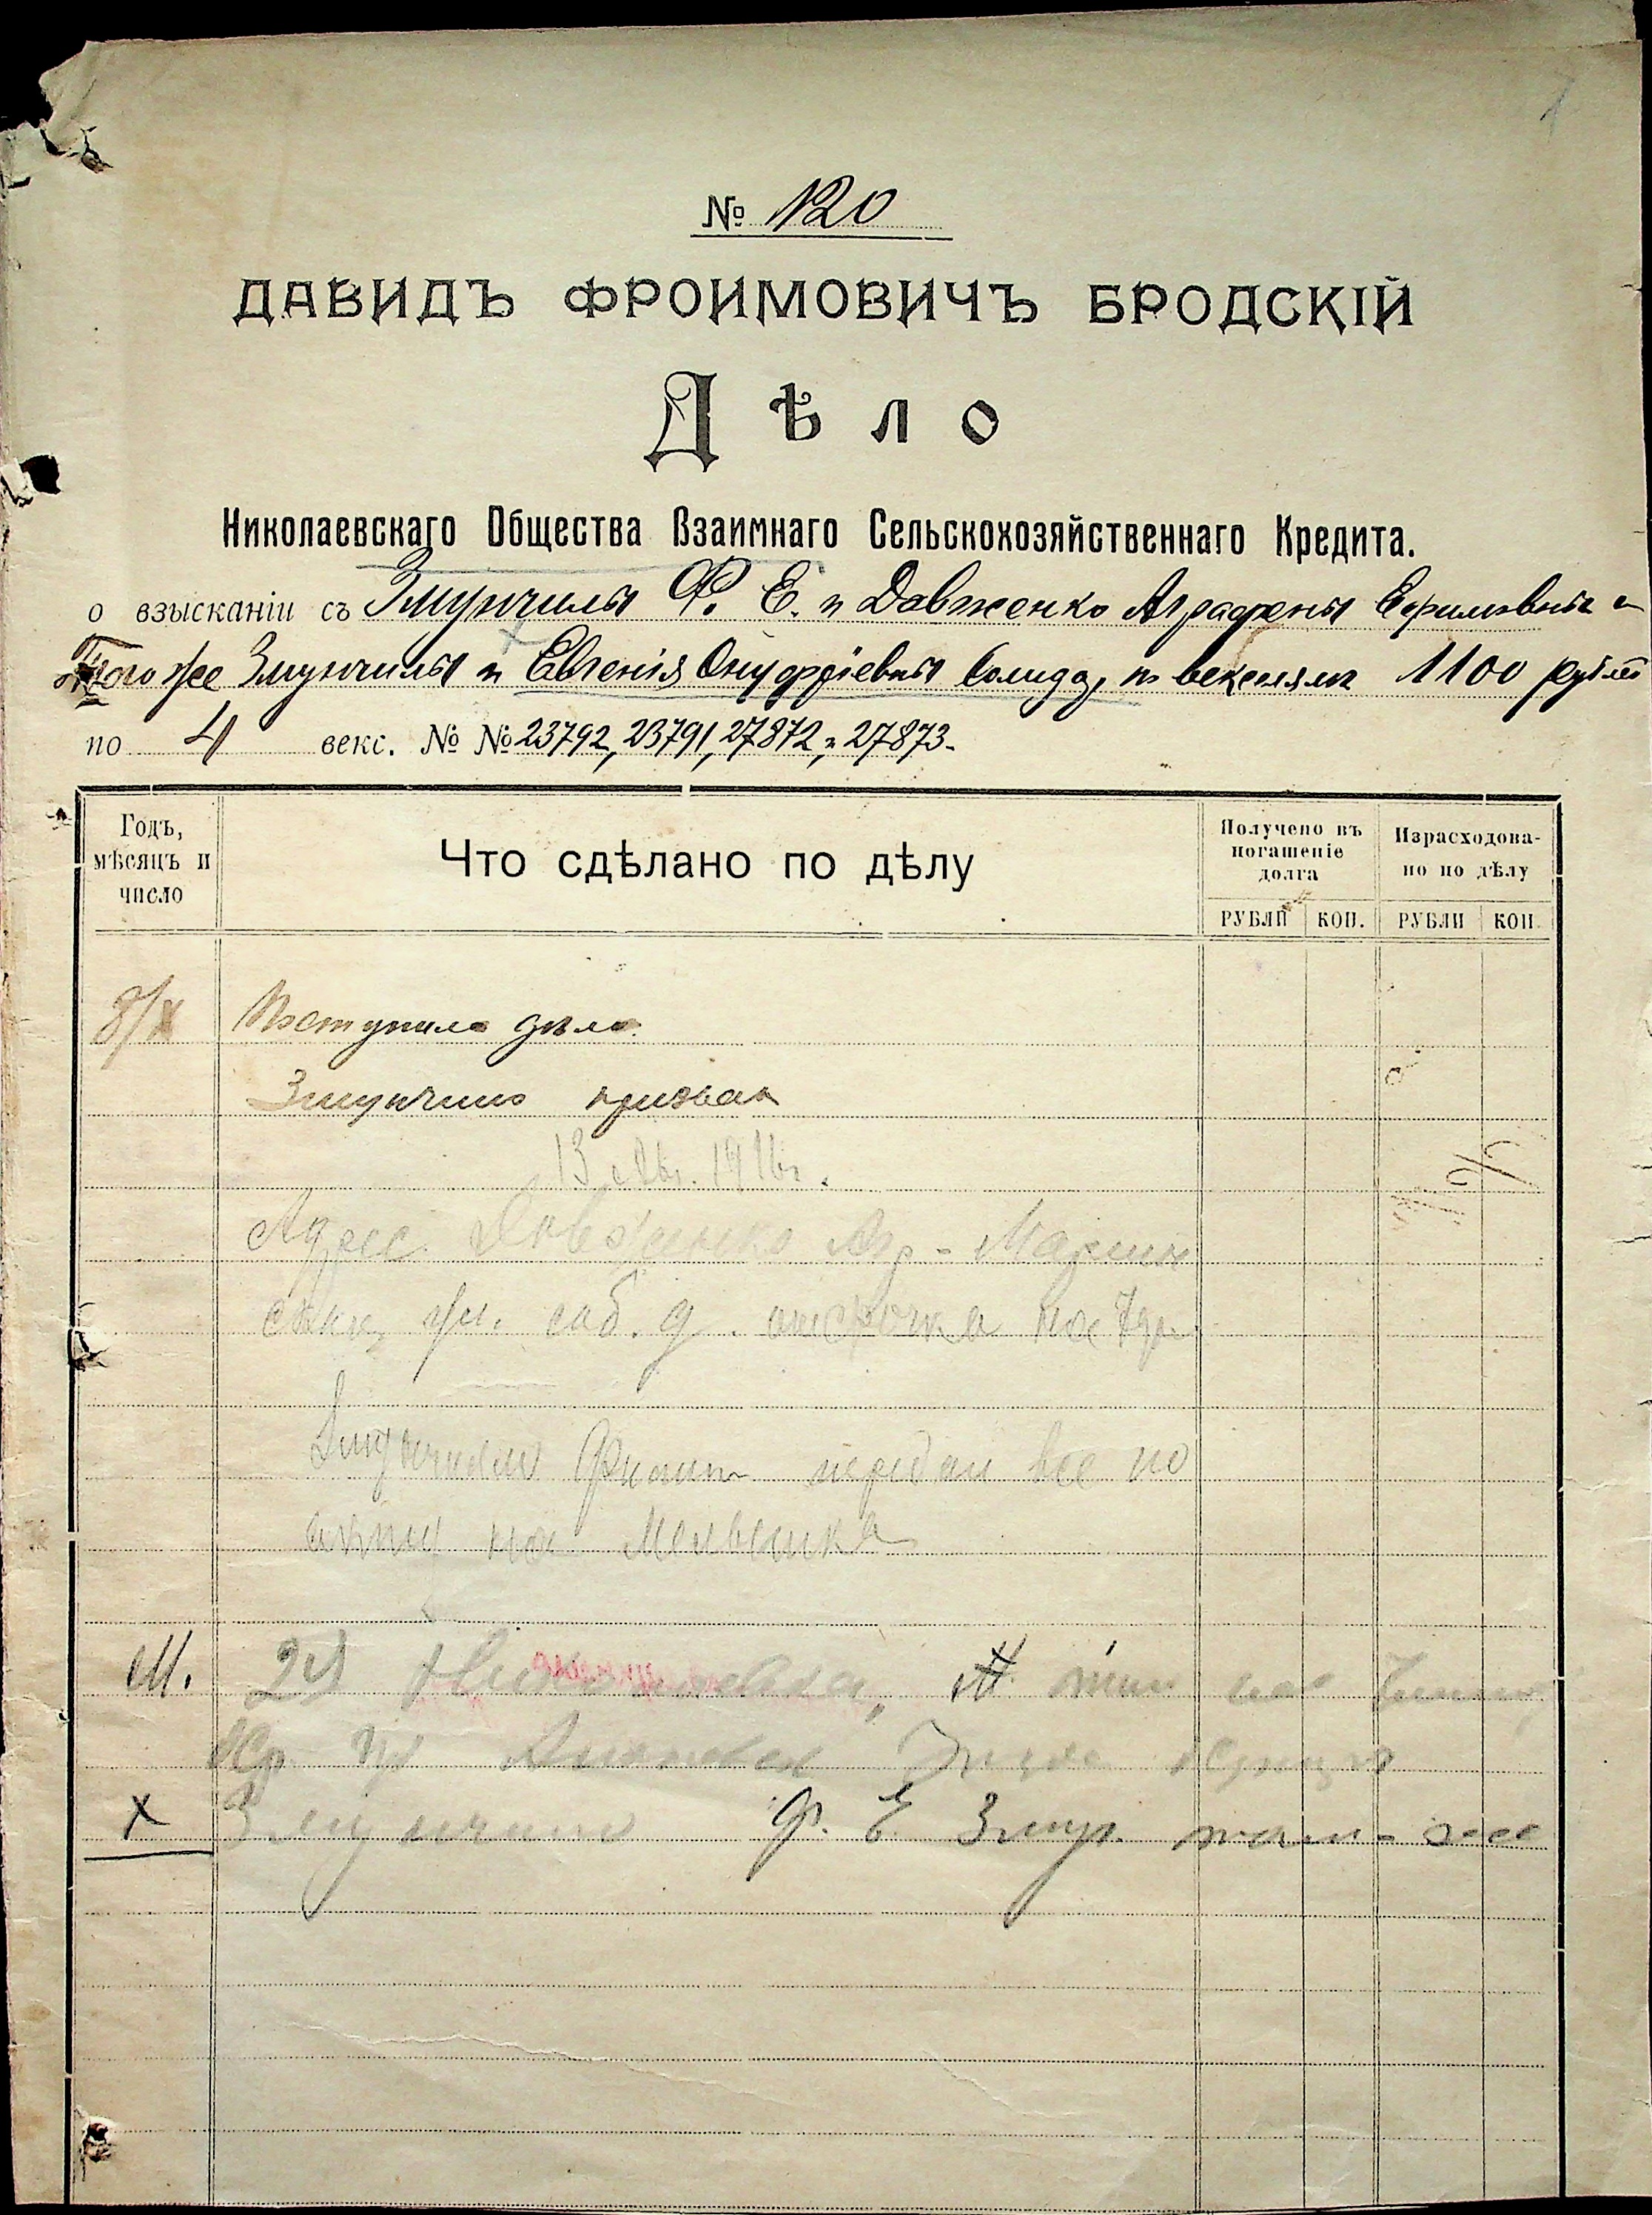 № 120
ДАВИДЪ ФРОИМОВИЧЪ БРОДСКІЙ
Дѣло
Николаевскаго Общества Взаимнаго Сельскохозяйственнаго Кредита.
о взысканіи съ Змунчилы Ф. Е. и Давженко Аграфены Ефимовны и
Того же Змунчилы и Евгенія Онуфріевны Солида, по векселямъ 1100 рублей
по 4 векс. № № 23792, 23791, 27872 и 27873.
Годъ, мѣсяцъ и число
Что сдѣлано по дѣлу
Получено въ погашеніе долга
Израсходова-но по дѣлу
РУБЛИ КОП. РУБЛИ КОП.
8/X Поступило дѣло.
Змунчило призван
13 1916 г.
Адрес Довженко Агр - Марии
ул. соб. д. отсрочка на 7
Змунчило Филип передал все по
акту на Мельника
М. 24
X Змунчило Ф. Е. Змун. там-же